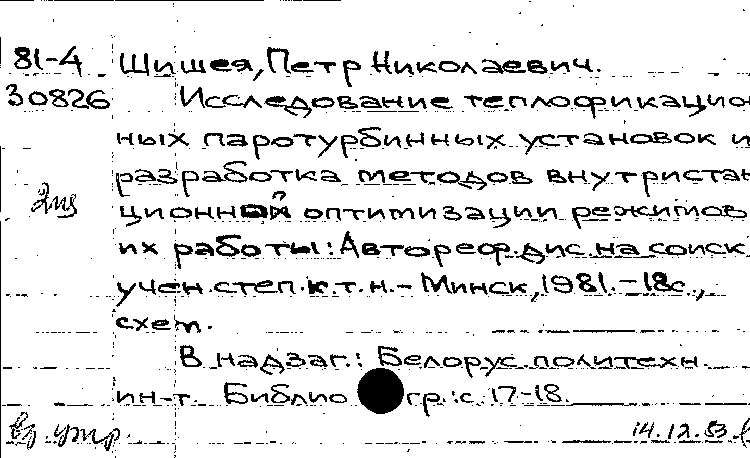 81-4 Шишея, Петр Николаевич.
30826 Исследование теплофикацион
ных паротурбинных установок и
разработка методов внутристан
ционной оптимизации режимов
их работы: Автореф. дис. на соиск.
учен. степ. к. т. н. - Минск, 1981. - 18с.,
схем.
В надзаг.: Белорус. политехн.
ин-т. Библиогр.: с. 17-18.
14.12.83